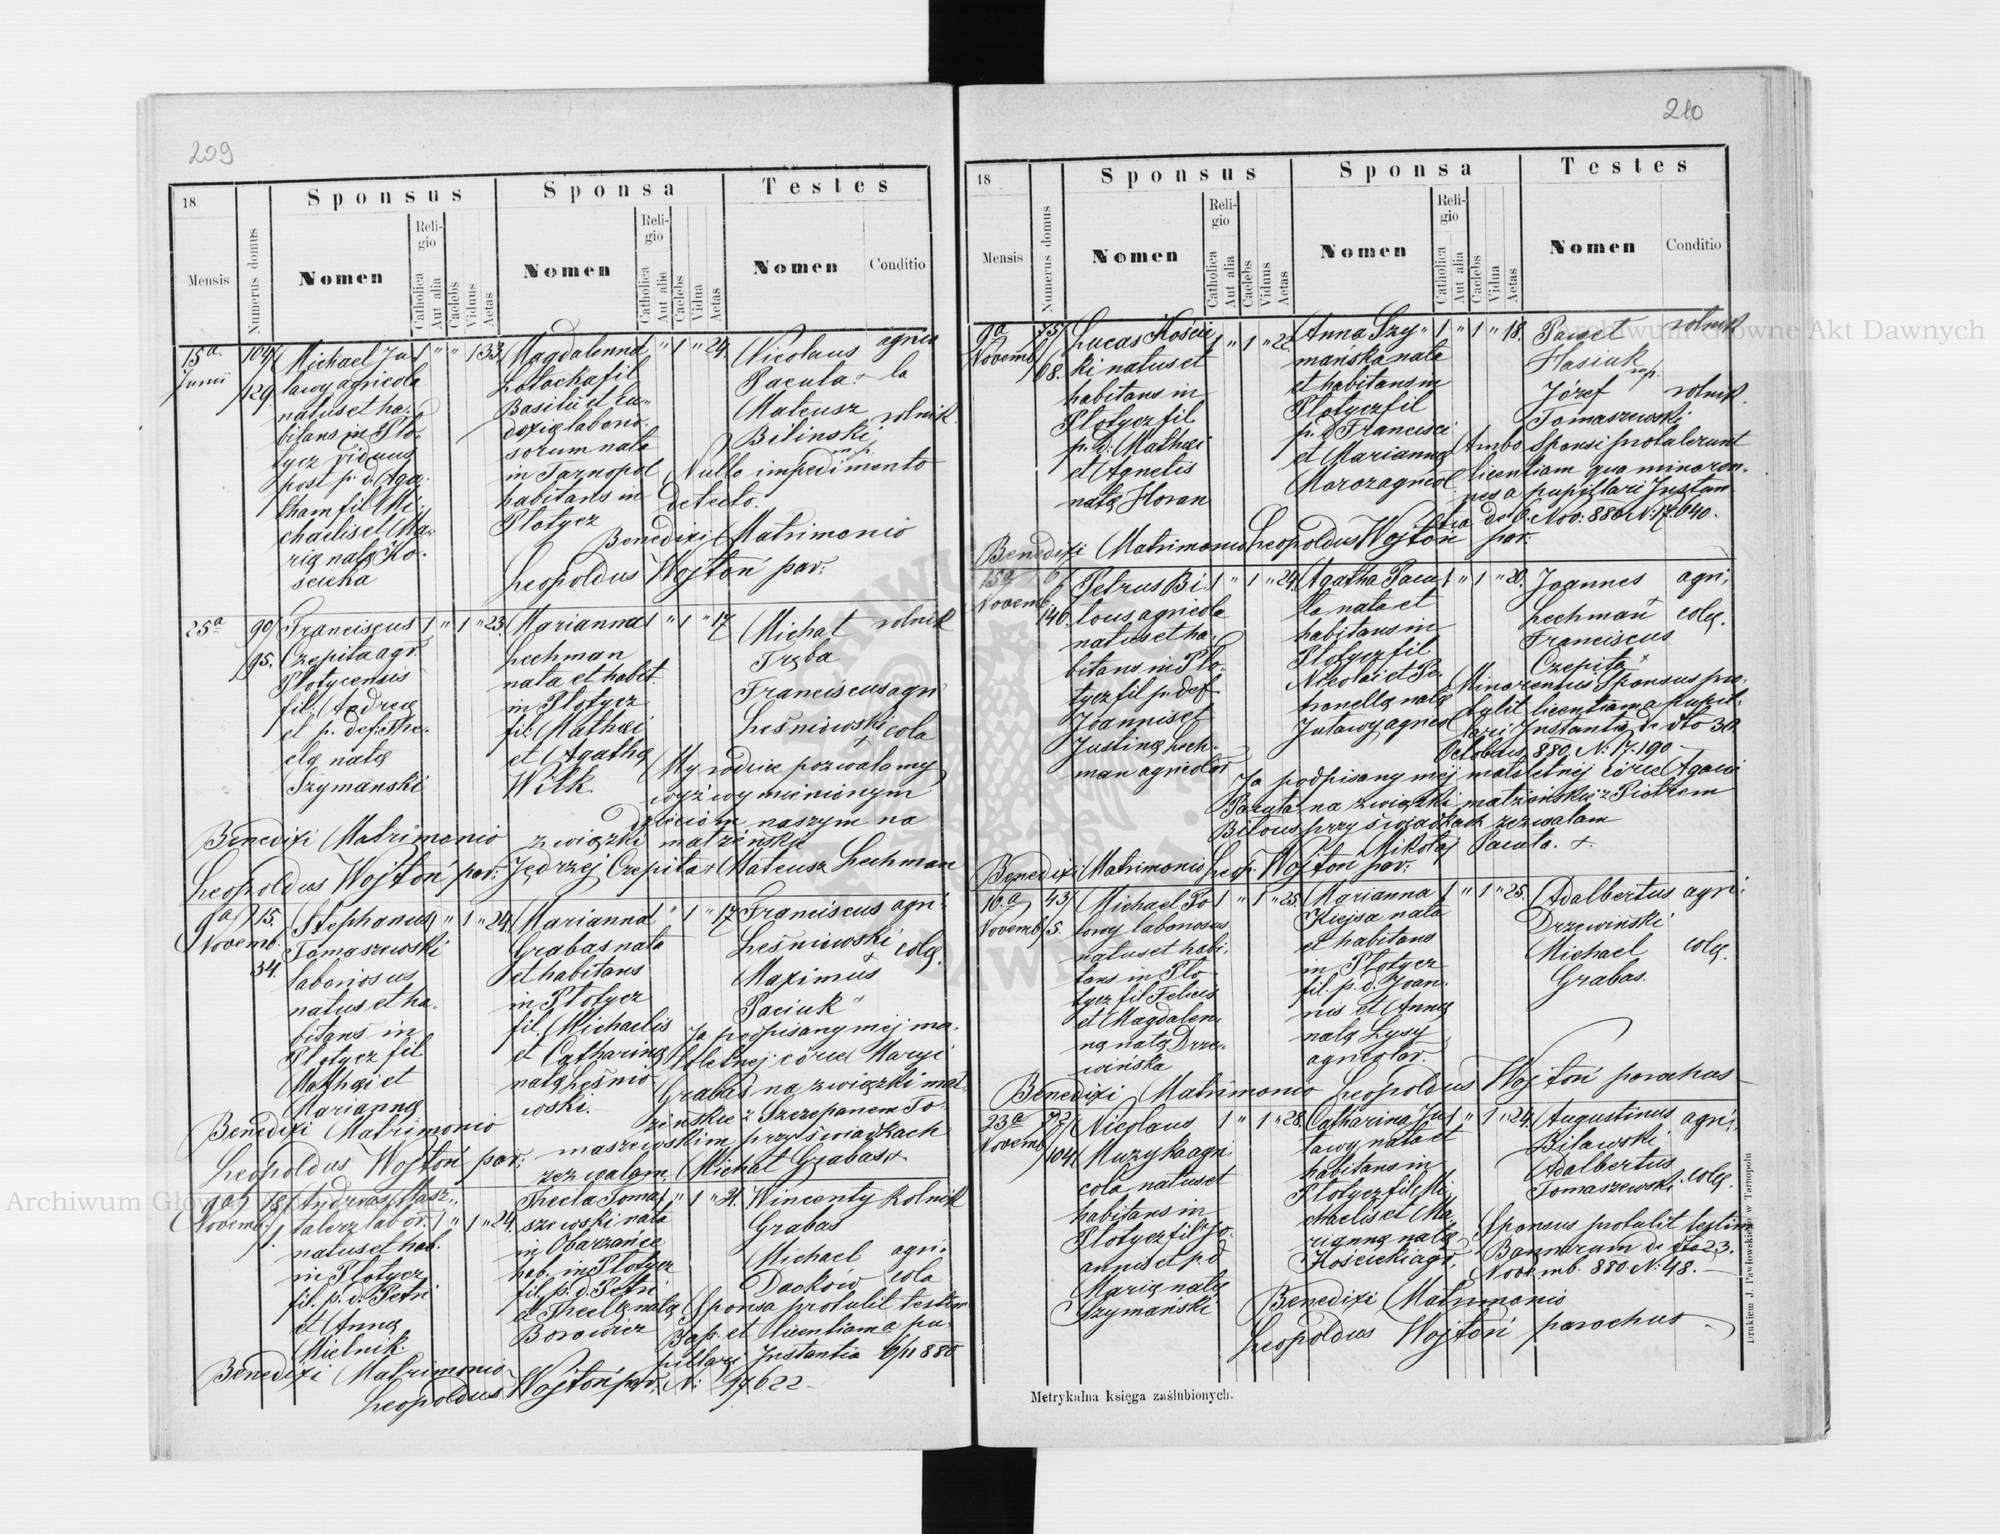 209
18
Mensis
Numerus domus
Sponsus
Nomen
Religio
Catholica
Aut alia
Caelebs
Viduus
Aetas
Sponsa
Nomen
Religio
Catholica
Aut alia
Caelebs
Vidua
Aetas
Testes
Nomen
Conditio
15a
Junii
104/
129
Michael Ju
tawy agricola
natus et ha
bitans in Pło
tycz viduus
post p. d. Aga
tham fil Mi
chaelis et Ma
ria nata Ko
ścicka
1 " " 1 33
Magdalenna
Łotocka fil
Basilii et Eu
doxię laborio
sorum nata
in Tarnopol
habitans in
Płotycz
" 1 " 24
Nicolaus agrico
Pacuła + la
Mateusz rolnik
Biliński mp.
Nullo impedimento
detecto.
Benedixi Matrimonio
Leopoldus Wojtoń par.
25a
90/
95.
Franciscus
Czepita agr.
Płotycensis
fil. Andreę
et p. def. The
clę natę
Szymański
1 " 1 " 23.
Marianna
Lechman
nata et habit.
in Płotycz
fil. Mathei
et Agathę
Wilk
1 " 1 " 17
Michał rolnik
Tręba
Franciscus agri
Leśniowski cola
+
My rodzice pozwalamy
wyż wymienionym
dzieciom naszym na
związki małżeńskie
Benedixi Matrimonio
Leopoldus Wojtoń par. Jędrzej Czepita + Mateusz Lechman
9a
Novemb.
15.
34.
Stephanus
Tomaszewski
laboriosus
natus et ha
bitans in
Płotycz fil
Mathei et
Mariannę
" 1 " 24.
Marianna
Grabas nata
et habitans
in Płotycz
fil. Michaelis
et Catharinę
natę Leśnio
wski.
1 " 1 " 17
Franciscus agri
Leśniowski colę.
+
Maximus
Paciuk +
Ja podpisany mej ma
łoletniej córce Maryi
Grabas na związki mał
żeńskie z Szczepanem To
maszewskim przy świadkach
zezwalam. Michał Grabas +
Benedixi Matrimonio
Leopoldus Wojtoń par.
9a
Novemb.
78/
1.
Andreas Masz
talerz labor.
natus et hab.
in Płotycz
fil. p. d. Petri
et Annę
Mielnik.
1 " 1 " 24.
Thecla Toma
szewski nata
in Obarzańce
hab. in Płotycz
fil. p. d. Petri
et Theclę natę
Borowicz
" 1 " 21.
Wincenty Rolnik
Grabas
Michael agri
Daćków cola
Sponsa protulit testim
Bap. et licentiam a pu
pillari Instantia 6/11 880
N: 17622
Benedixi Matrimonio
Leopoldus Wojtoń par.
210
18
Mensis
Numerus domus
Sponsus
Nomen
Religio
Catholica
Aut alia
Caelebs
Viduus
Aetas
Sponsa
Nomen
Religio
Catholica
Aut alia
Caelebs
Vidua
Aetas
Testes
Nomen
Conditio
9a
Novemb
75/
68.
Lucas Kościc
ki natus et
habitans in
Płotycz fil
p. d. Mathei
et Agnetis
natę Horan
1 " 1 " 22
Anna Szy
mańska nata
et habitans in
Płotycz fil
p. d. Francisci
et Mariannę
Maroz agricol
1 " 1 " 18.
Paweł rolnik
Hasiuk mp.
Józef rolnik
Tomaszewski
Ambo Sponsi protulerunt
licentiam qua minoren
nes a pupillari Instan
tia de 6. Nov: 880 N: 17.640.
Benedixi Matrimonio Leopoldus Wojtoń par.
15a
Novemb.
6/
146.
Petrus Bi
lous agricola
natus et ha
bitans in Pło
tycz fil p. def
Joannis et
Justinę Lech
man agricolar
1 " 1 " 24.
Agatha Pacu
ła nata et
habitans in
Płotycz fil
Nicolai et Pe
tronellę natę
Jutawy agricol
1 " 1 " 20.
Joannes agri
Lechman + colę.
Franciscus
Czepita +
Minorennis Sponsus pro
tulit licentiam a pupil
lari Instantia de dto 30
Octobris 880. N: 17.190.
Ja podpisany mej małoletniej córce Agacie
Pacuła na związki małżeńskie z Piotrem
Biłous przy świadkach zezwalam
Mikołaj Pacuła. +
Benedixi Matrimonio Leop. Wojtoń par.
16a
Novemb
43/
5.
Michael Po
towy laboriosus
natus et habi
tans in Pło
tycz fil Felicis
et Magdalen
nę natę Drze
wińska
1 " 1 " 25.
Marianna
Kiejsa nata
et habitans
in Płotycz
fil. p. d. Joan
nis et Annę
natę Łysy
agricolar.
1 " 1 " 25.
Adalbertus agri
Drzewiński
Michael colę.
Grabas.
Benedixi Matrimonio Leopoldus Wojtoń parochus
23a
Novemb
72/
104.
Nicolaus
Muzyka agri
cola natus et
habitans in
Płotycz fil Jo
annis et p. d
Marię natę
Szymański
1 " 1 " 28.
Catharina Ju
tawy nata et
habitans in
Płotycz fil Mi
chaelis et Ma
riannę natę
Kościcki agr.
" 1 " 24.
Augustinus agri
Bilawski
Adalbertus
Tomaszewski. colę.
Sponsus protulit testim
Bannorum de dto 23.
Novemb. 880. N: 48.
Benedixi Matrimonio
Leopoldus Wojtoń parochus
Drukiem J. Pawłowskiego w Tarnopolu
Metrykalna księga zaślubionych.
Archiwum Główne Akt Dawnych